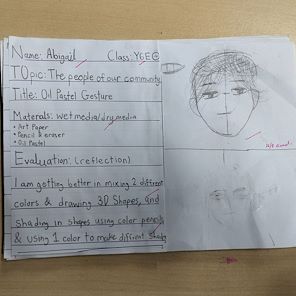 Name: Abigail Class: Y6E
Topic: The people of our community
Title: Oil Pastel Gesture
Materals: wet media/dry media
• Art Paper
• Pencil & eraser
• Oil Pastel
Evaluation: (reflection)
I am gotting better in mixing 2 different
colors & drawing 3D Shapes, and
shading in shapes using color pencils
& using 1 color to make diffrent shades